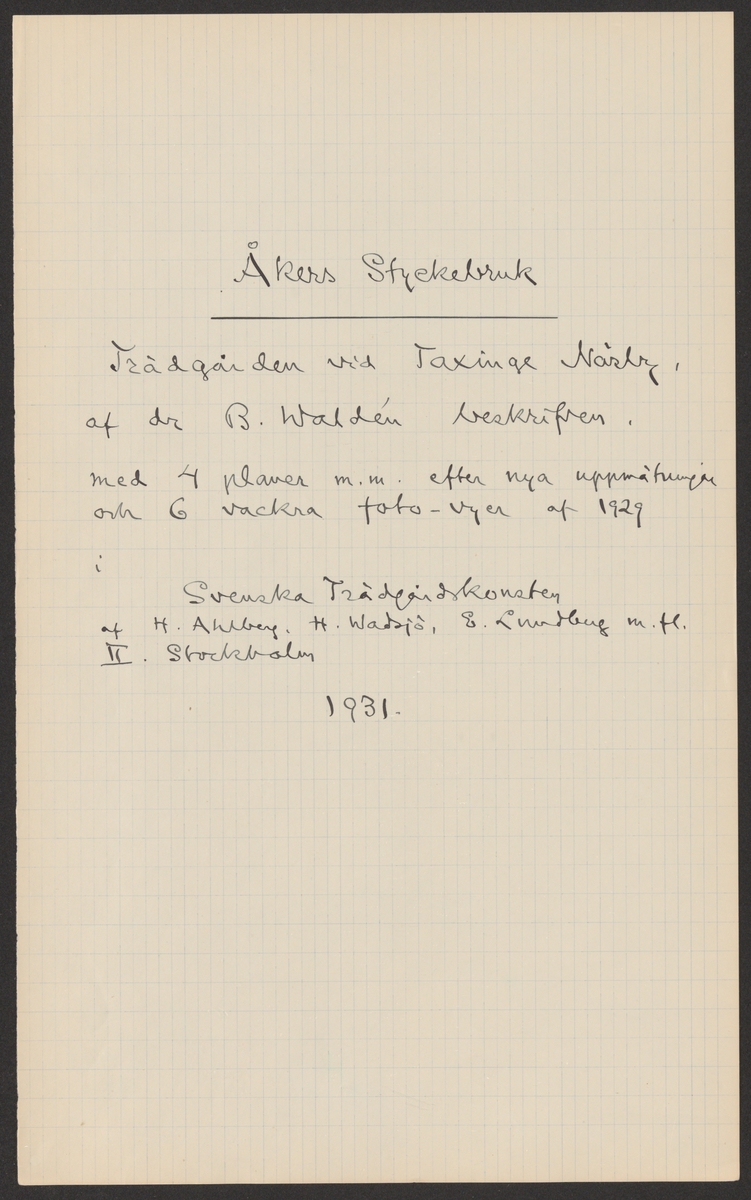 Åkers Styckebruk
Trädgården vid Taxinge Näsby,
af dr B. Waldén beskrifven.
med 4 planer m.m. efter nya uppmätningar
och 6 vackra foto-vyer af 1929
i
Svenska Trädgårdskonsten
af H. Ahlberg, H. Wadsjö, E. Lundberg m.fl.
II. Stockholm
1931.